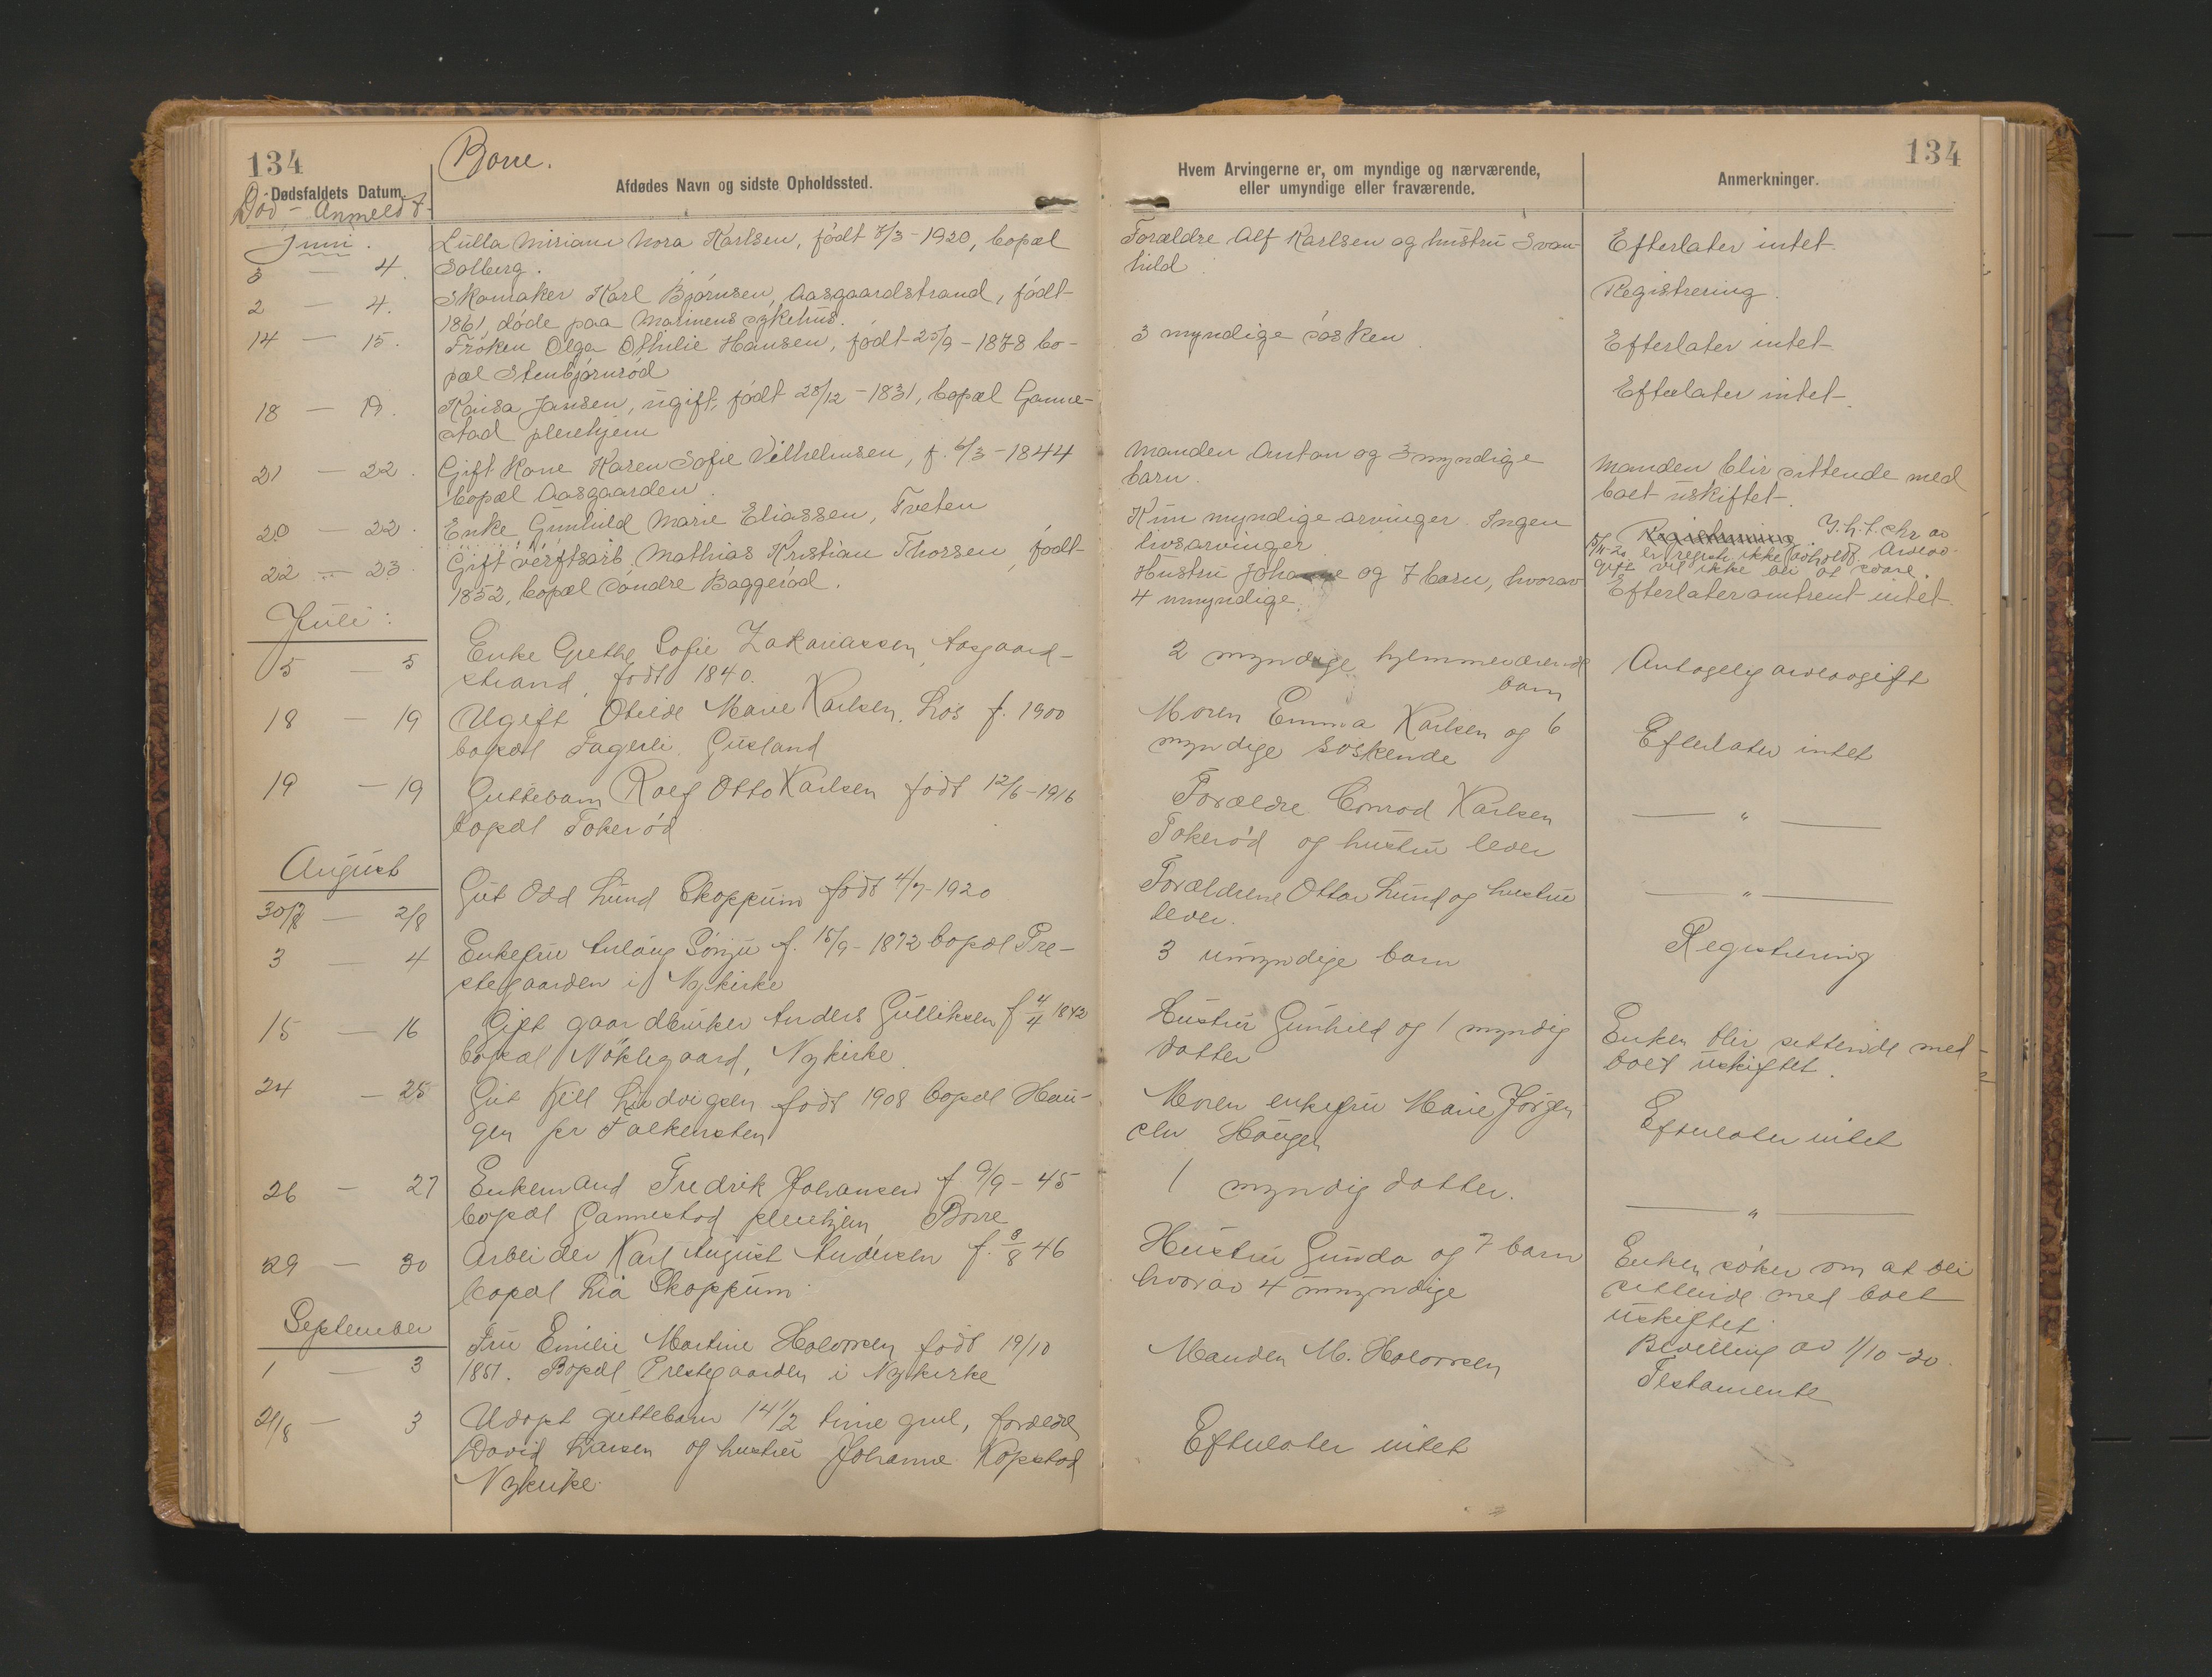 134
Borre.
Dødsfaldets Datum.
Død - Anmeldt
Afdødes Navn og sidste Opholdssted.
Juni.
Lulla Miriam Nora Karlsen, født 7/3-1920, bopæl
3 — 4. Solberg.
2 — 4. Skomaker Karl Bjørnsen, Aasgaardstrand, født
1861, døde paa Marinens sykehus.
14 — 15. Frøken Olga Othilie Hansen, født 25/9-1878 bo-
pæl Stenbjørnrød
18 — 19. Kaisa Jansen, ugift, født 28/12-1831, bopæl Ganne-
stad pleiehjem
21 — 22. Gift Kone Karen Sofie Vilhelmsen, f. 6/3-1844
bopæl Aasgaarden.
20 — 22. Enke Gunhild Marie Eliassen, Tveten
22 — 23. Gift verftsarb. Mathias Kristian Thorsen, født
1852, bopæl Søndre Baggerød.
Juli:
5 — 5 Enke Grethe Sofie Zakariassen, Aasgaard-
strand, født 1840.
18 — 19 Ugift Otilde Marie Karlsen, Løs f. 1900
bopæl Fagerli. Gusland
19 — 19 Guttebarn Rolf Otto Karlsen født 12/6-1916
bopæl Tokerød
August
30/7 — 2/8 Gut Odd Lund Skoppum født 4/7-1920
3 — 4 Enkefru Aulaug Sønju f. 15/9-1872 bopæl Pre-
stegaarden i Nykirke
15 — 16 Gift gaardbruker Anders Gulliksen f 4/4 1842
bopæl Nøklegaard, Nykirke
24 — 25 Gut Kjell Ludvigsen født 1908 bopæl Hau-
gen pr Falkensten
26 — 27 Enkemand Fredrik Johansen f 9/9-45
bopæl Gannestad pleiehjem Borre
29 — 30 Arbeider Karl August Andersen f. 8/8 46
bopæl Lia Skoppum
September
Fru Emilie Martine Halvorsen født 19/10
1 — 3 1851. Bopæl Prestegaarden i Nykirke
21/8 — 3 Udøpt guttebarn 14 1/2 time gml, forældre
David Larsen og hustru Johanne Kopstad
Nykirke
134
Hvem Arvingerne er, om myndige og nærværende,
eller umyndige eller fraværende.
Anmerkninger.
Forældre Alf Karlsen og hustru Svan-
hild.
Efterlater intet.
Registrering.
3 myndige søsken.
Efterlater intet
Efterlater intet.
Manden Anton og 3 myndige
barn.
Manden blir sittende med
boet uskiftet.
Kun myndige arvinger. Ingen
livsarvinger
Registrering. I.h.t. skr av
15/11-20 er registr. ikke avholdt Arveav-
gift vil ikke bli at svare.
Hustru Johanne og 7 barn, hvorav
4 umyndige.
Efterlater omtrent intet.
2 myndige hjemmeværende
barn
Antagelig arveavgift
Moren Emma Karlsen og 6
myndige søskende
Efterlater intet
Forældre Conrad Karlsen
Tokerød og hustru lever
— " —
Forældrene Ottar Lund og hustru
lever.
— " —
3 umyndige barn
Registrering
Hustru Gunhild og 1 myndig
datter
Enken blir sittende med
boet uskiftet.
Moren enkefru Marie Jørgen
sen Haugen
Efterlater intet
1 myndig datter.
— " —
Hustru Gunda og 7 barn
hvorav 4 umyndige
Enken søker om at bli
sittende med boet
uskiftet.
Bevilling av 1/10-20.
Manden M. Halvorsen
Testamente
Efterlater intet